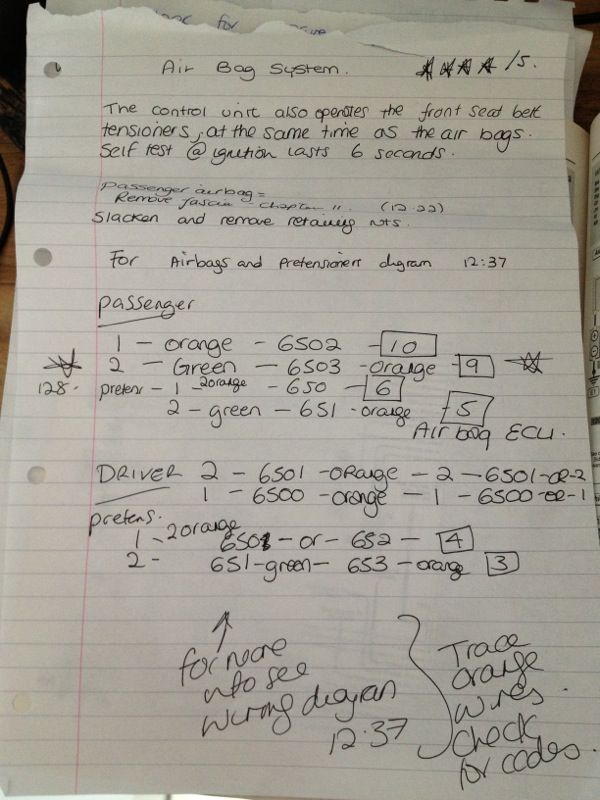 Air Bag System. /5.
The control unit also operates the front seat belt
tensioners, at the same time as the air bags.
Self test @ ignition lasts 6 seconds.
Passenger airbag =
Remove fascia - chapter 11. (12.22)
Slacken and remove retaining nts.
For Airbags and pretensioners diagram 12:37
Passenger
1 - orange - 6502 - 10
2 - Green - 6503 - orange - 9
128.
pretens - 1 - 2orange - 650 - 6
2 - green - 651 - orange - 5
Air bag ECU.
DRIVER 2 - 6501 - ORange - 2 - 6501 - OR - 2
1 - 6500 - orange - 1 - 6500 - or - 1
pretens.
1 - 2orange
- or - 652 - 4
2 - 651 - green - 653 - orange 3
for more
info see
wiring diagram
12.37
Trace
orange
wires.
Check
for codes.